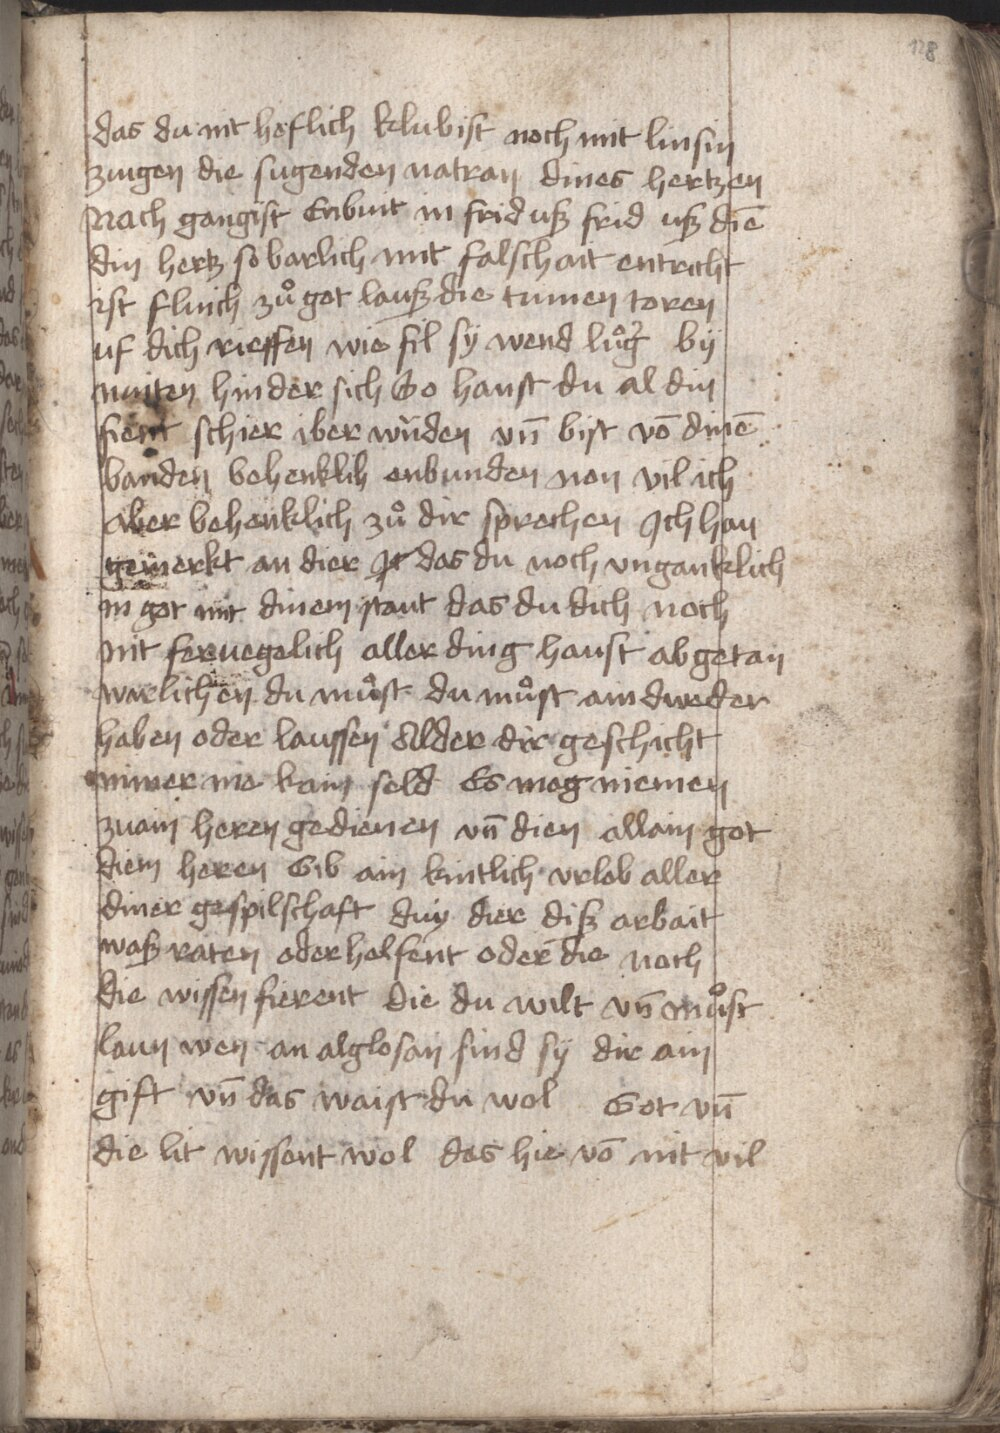 128
das du nit heflich klubist noch mit linsin
zungen die sugenden natran dines hertzen
Nach gangist Enbint in frid uß frid uß diē
din hertz so barlich mit falschait entricht
ist fluich zuͦ got lauß die tumen toren
uf dich rieffen wie fil sy wend luͦg by
nuiten hinder sich So haust du al din
fient schier iber wūden vn̄ bist vō dinē
banden behenklich enbunden non vil ich
aber behenklich zuͦ dir sprechen Ich han
gemerkt an dier das du noch unganklich
in got mit dinem staut das du dich noch
nit feruegelich aller ding haust abgetan
warlichen du muͦst du muͦst aindweder
haben oder laussen Alder dir geschicht
nimer me kain seld Es mag niemen
zwain heren gedienen vn̄ dien allain got
diem heren Gib ain kintlich vrlob aller
diner gespilschaft duy dier diß arbait
waß raten oder helfent oder die noch
die wissen fierent die du wilt vn̄ muͦst
laun wen an alglosan sind sy dir ain
gift vn̄ das waist du wol Got vn̄
die lit wissent wol das hie vō nit vil